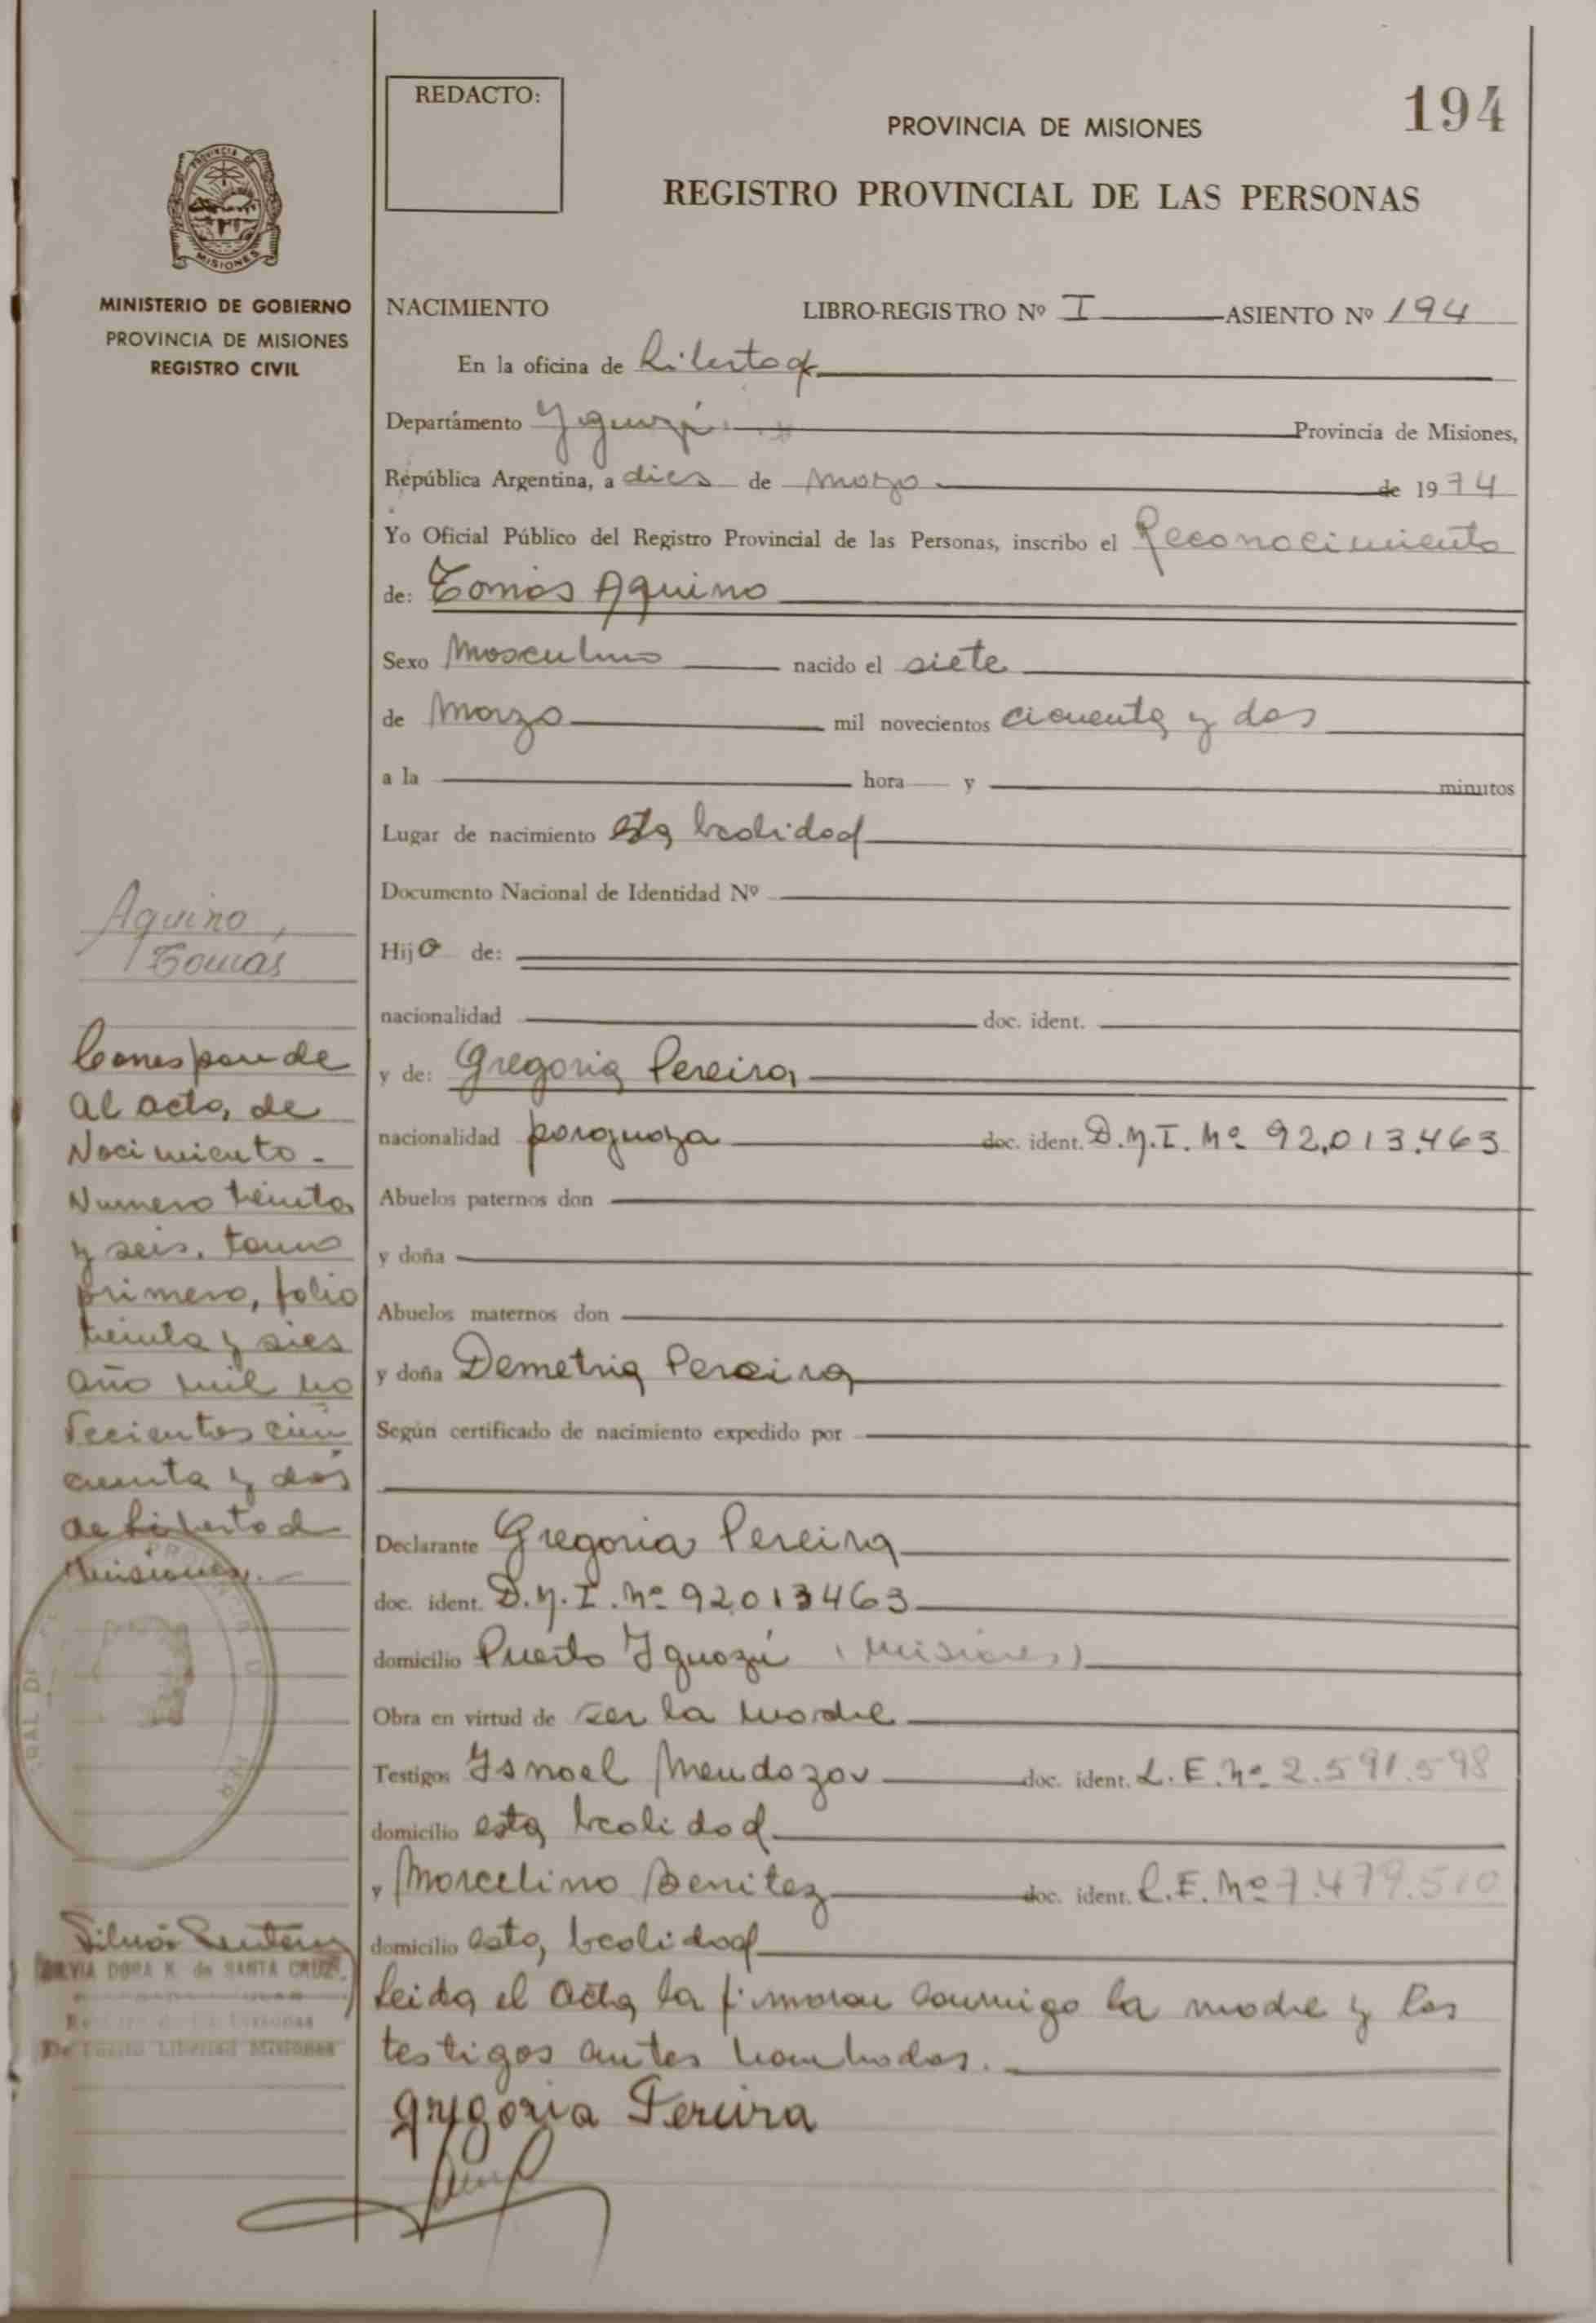 REDACTO:
194
PROVINCIA DE MISIONES
REGISTRO PROVINCIAL DE LAS PERSONAS
PROVINCIA DE
MISIONES
MINISTERIO DE GOBIERNO
PROVINCIA DE MISIONES
REGISTRO CIVIL
NACIMIENTO LIBRO-REGISTRO Nº I ASIENTO Nº 194
En la oficina de Libertad
Departámento Yguazú Provincia de Misiones,
República Argentina, a dies de Marzo de 1974
Yo Oficial Público del Registro Provincial de las Personas, inscribo el Reconocimiento
de: Tomás Aquino
Sexo Masculino nacido el siete
de Marzo mil novecientos cicuenta y dos
a la hora y minutos
Lugar de nacimiento esta localidad
Documento Nacional de Identidad Nº
Hijo de:
nacionalidad doc. ident.
y de: Gregoria Pereira
nacionalidad paraguaya doc. ident. D.N.I. Nº 92.013.463
Abuelos paternos don
y doña
Abuelos maternos don
y doña Demetria Pereira
Según certificado de nacimiento expedido por
Declarante Gregoria Pereira
doc. ident. D.N.I. Nº 92.013463
domicilio Puerto Iguazú (Misiones)
Obra en virtud de ser la madre
Testigos Ismael Mendoza doc. ident. L.E. Nº 2.591.598
domicilio esta localidad
y Marcelino Benitez doc. ident. L.E. Nº 7.479.510
domicilio esta localidad
Leida el Acta la firman conmigo la madre y los
testigos antes nombrados.
Gregoria Pereira
Aquino,
Tomas
Corresponde
al acta de
Nacimiento -
Numero treinta
y seis, tomo
primero, folio
treinta y sies
año mil no
vecientos cin
cuenta y dos
de Libertad
Misiones. -
SILVIA DORA K. de SANTA CRUZ
Personas
De Puerto Libertad Misiones